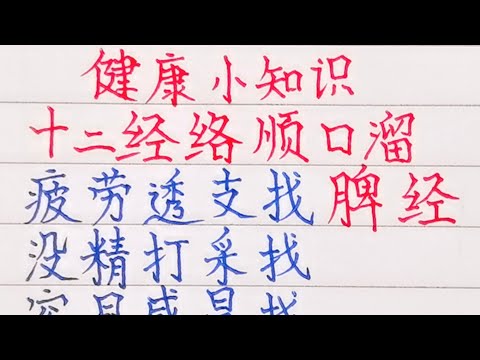 健康小知识
十二经络顺口溜
疲劳透支找脾经
没精打采找
容易感冒找